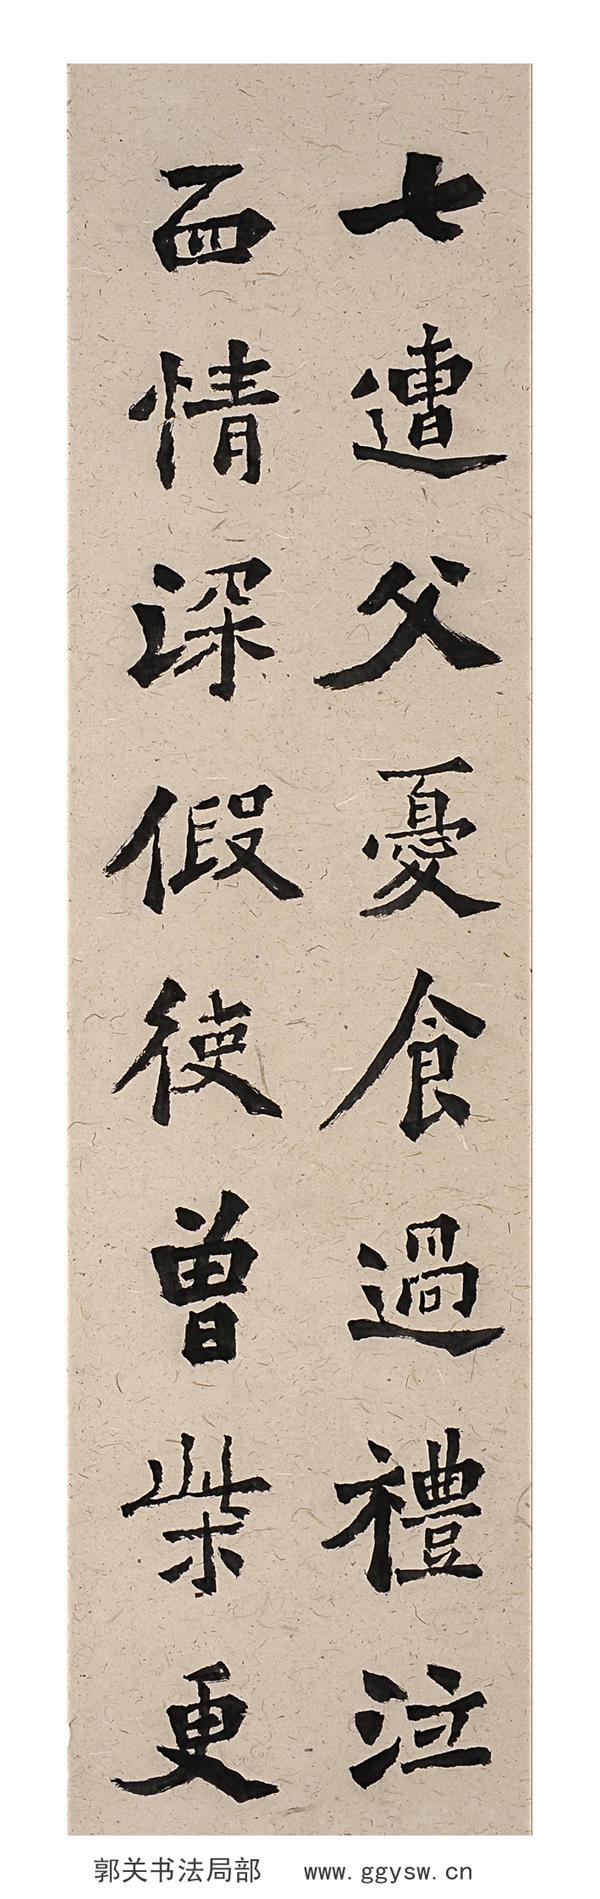 七遭父憂食過禮泣
血情深假使曾柴更
郭关书法局部 www.ggysw.cn